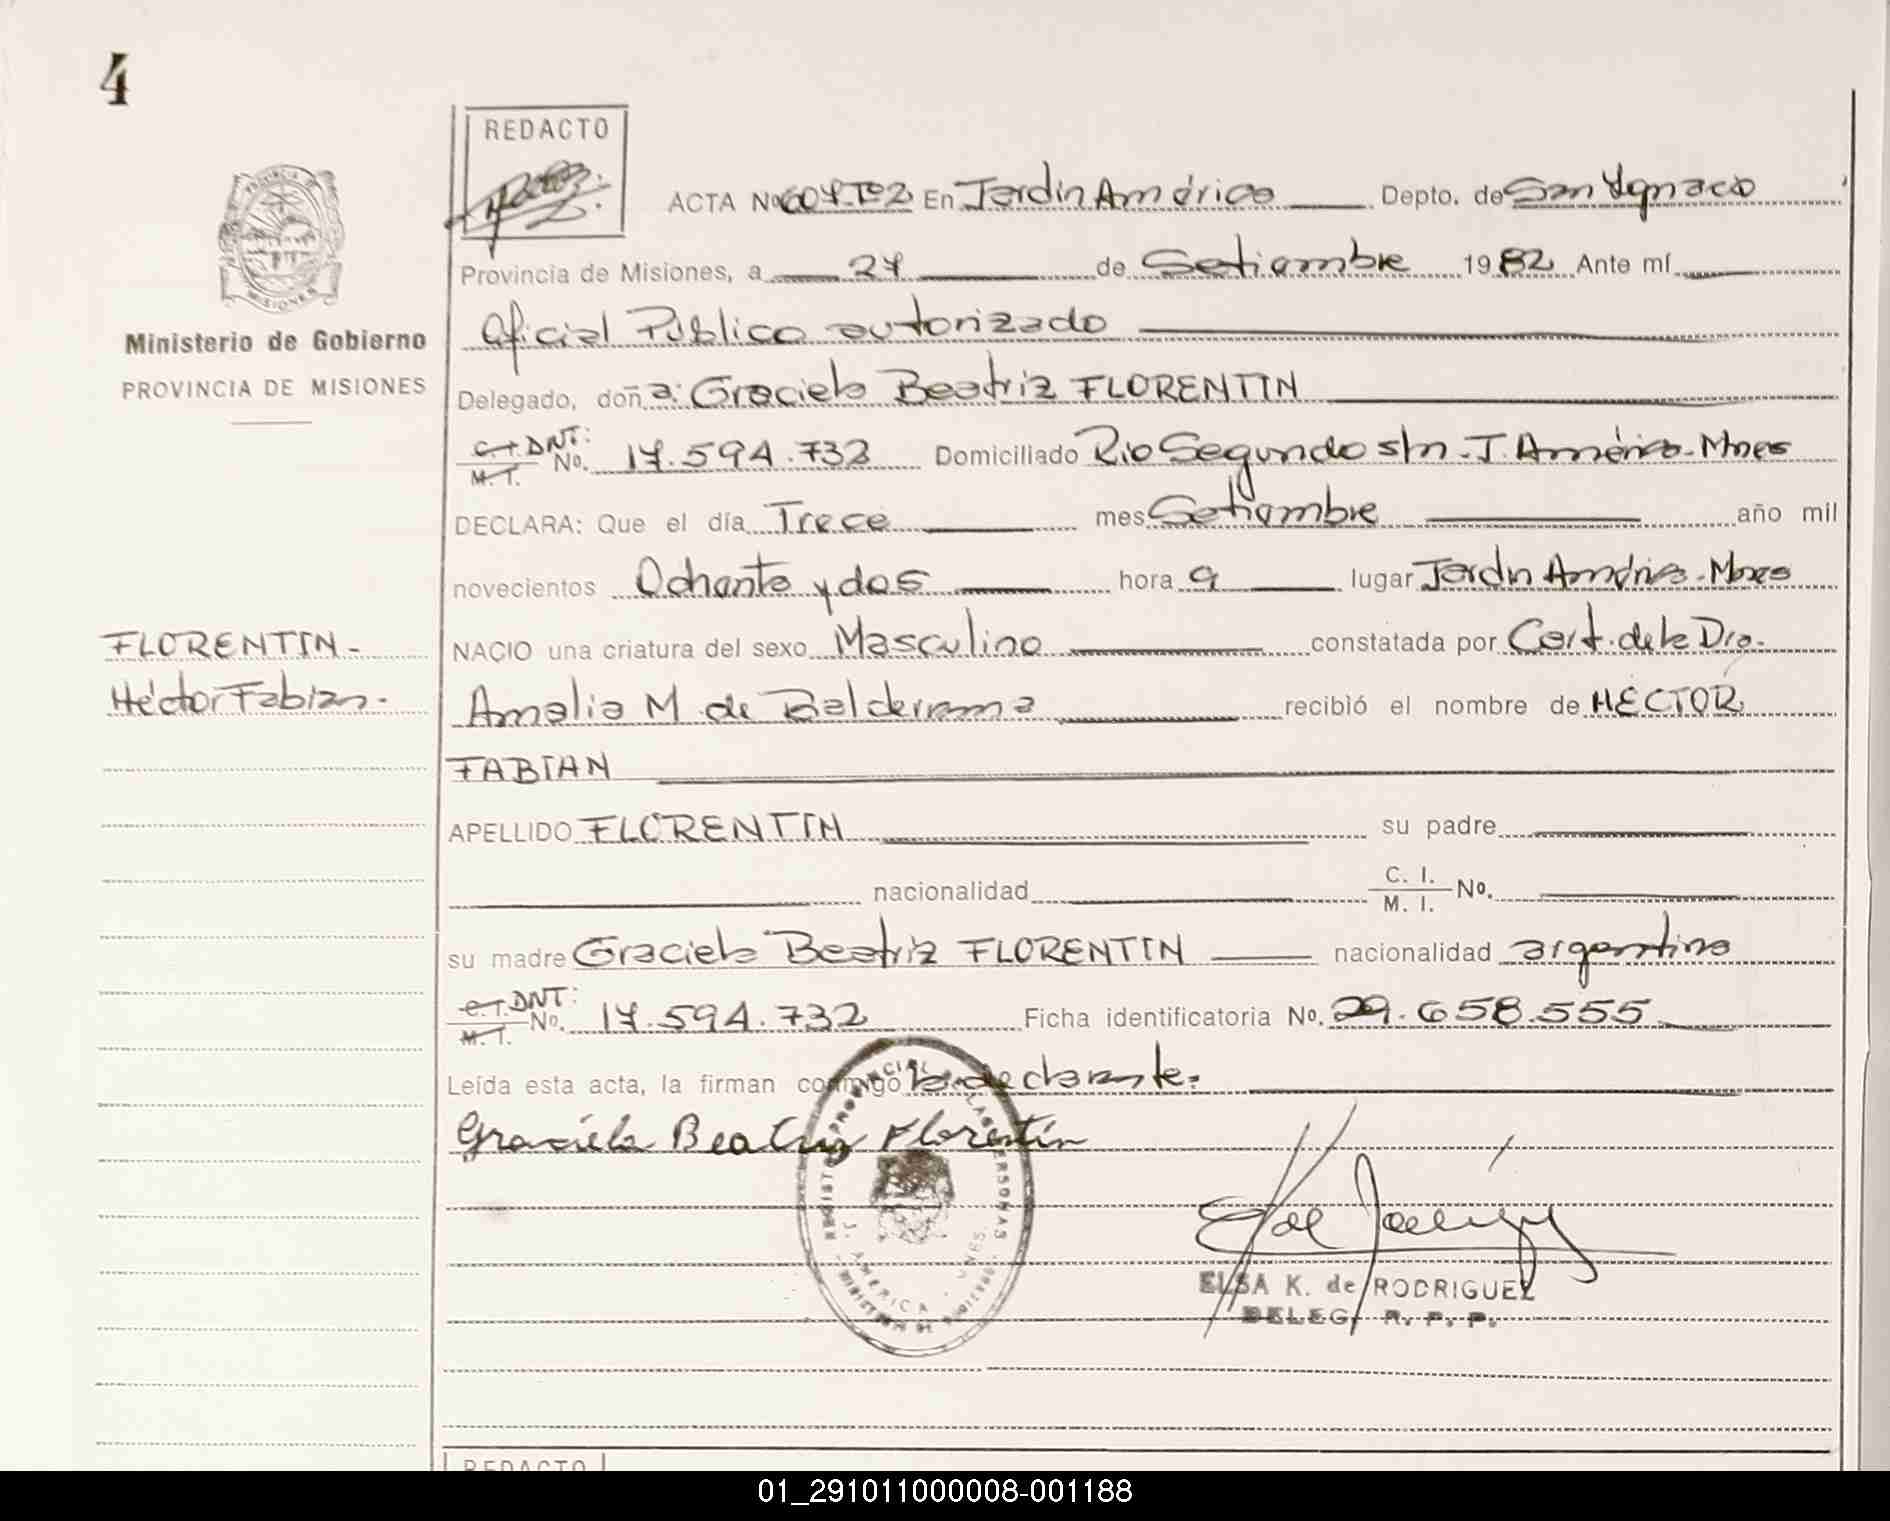 4
REDACTO
ACTA No 607 Tº2 En Jardín América Depto. de San Ygnacio
Provincia de Misiones, a 27 de Setiembre 1982 Ante mí
Oficial Público autorizado
PROVINCIA DE
MISIONES
Ministerio de Gobierno
PROVINCIA DE MISIONES
Delegado, doña: Graciela Beatriz FLORENTIN
C.I. DNI:
M. I. No. 17.594.732 Domiciliado Rio Segundo s/n. J. América. Mnes
DECLARA: Que el día Trece mes Setiembre año mil
novecientos Ochenta y dos hora 9 lugar Jardín América. Mnes
FLORENTIN.
NACIO una criatura del sexo Masculino constatada por Cert. de la Dra.
Héctor Fabian.
Amalia M. de Balderrama recibió el nombre de HÉCTOR
FABIAN
APELLIDO FLORENTIN su padre
nacionalidad C. I. M. I. No.
su madre Graciela Beatriz FLORENTIN nacionalidad argentina
C.I. DNI:
M. I. No. 17.594.732 Ficha identificatoria No. 29.658.555
Leída esta acta, la firman conmigo la declarante.
Graciela Beatriz Florentín
REGISTRO PROVINCIAL DE LAS PERSONAS
J. AMERICA - MNES.
ELSA K. de RODRIGUEZ
DELEG. R. P. P.
REDACTO
01_291011000008-001188